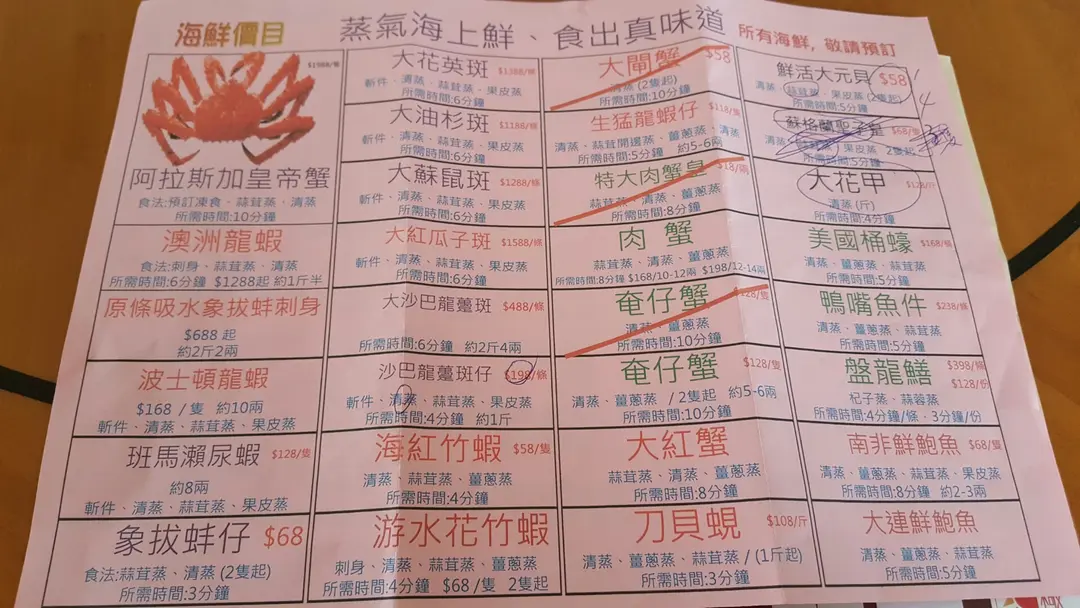 海鮮價目
蒸氣海上鮮、食出真味道
所有海鮮, 敬請預訂
$1988/條
阿拉斯加皇帝蟹
食法:預訂凍食、蒜茸蒸、清蒸
所需時間:10分鐘
澳洲龍蝦
食法:刺身、蒜茸蒸、清蒸
所需時間:6分鐘 $1288起 約1斤半
原條吸水象拔蚌刺身
$688 起
約2斤2兩
波士頓龍蝦
$168 / 隻 約10兩
斬件、清蒸、蒜茸蒸、果皮蒸
班馬瀨尿蝦 $128/隻
約8兩
斬件、清蒸、蒜茸蒸、果皮蒸
象拔蚌仔 $68
食法:蒜茸蒸、清蒸 (2隻起)
所需時間:3分鐘
大花英斑 $1388/條
斬件、清蒸、蒜茸蒸、果皮蒸
所需時間:6分鐘
大油杉斑 $1188/條
斬件、清蒸、蒜茸蒸、果皮蒸
所需時間:6分鐘
大蘇鼠斑 $1268/條
斬件、清蒸、蒜茸蒸、果皮蒸
所需時間:6分鐘
大紅瓜子斑 $1588/條
斬件、清蒸、蒜茸蒸、果皮蒸
所需時間:6分鐘
大沙巴龍躉斑 $488/條
所需時間:6分鐘 約2斤4兩
沙巴龍躉斑仔 $198/條
斬件、清蒸、蒜茸蒸、果皮蒸
所需時間:4分鐘 約1斤
海紅竹蝦 $58/隻
清蒸、蒜茸蒸、薑蔥蒸
所需時間:4分鐘
游水花竹蝦
刺身、清蒸、蒜茸蒸、薑蔥蒸
所需時間:4分鐘 $68/隻 2隻起
大閘蟹 $58
清蒸 (2隻起)
所需時間:10分鐘
生猛龍蝦仔 $118/隻
清蒸、蒜茸開邊蒸、薑蔥蒸、清蒸
所需時間:5分鐘 約5-6兩
特大肉蟹皇 $18/兩
蒜茸蒸、清蒸、薑蔥蒸
所需時間:8分鐘
肉蟹
蒜茸蒸、清蒸、薑蔥蒸
所需時間:8分鐘 $168/10-12兩 $198/12-14兩
奄仔蟹 $128/隻
清蒸、薑蔥蒸
所需時間:10分鐘
奄仔蟹 $128/隻
清蒸、薑蔥蒸 / 2隻起 約5-6兩
所需時間:10分鐘
大紅蟹
蒜茸蒸、清蒸、薑蔥蒸
所需時間:8分鐘
刀貝蜆 $108/斤
清蒸、薑蔥蒸、蒜茸蒸 / (1斤起)
所需時間:3分鐘
鮮活大元貝 $58
清蒸、蒜茸蒸、果皮蒸 (2隻起)
所需時間:5分鐘
4
蘇格蘭聖子皇 $68/隻
果皮蒸 2隻起
所需時間:5分鐘
大花甲
清蒸 (斤)
所需時間:4分鐘
美國桶蠔 $168/條
清蒸、薑蔥蒸、蒜茸蒸
所需時間:5分鐘
鴨嘴魚件 $238/條
清蒸、薑蔥蒸、蒜茸蒸
所需時間:5分鐘
盤龍鱔 $398/條
$128/份
杞子蒸、蒜蓉蒸
所需時間:4分鐘/條、3分鐘/份
南非鮮鮑魚 $68/隻
清蒸、薑蔥蒸、蒜茸蒸、果皮蒸
所需時間:8分鐘 約2-3兩
大連鮮鮑魚
清蒸、薑蔥蒸、蒜茸蒸
所需時間:5分鐘